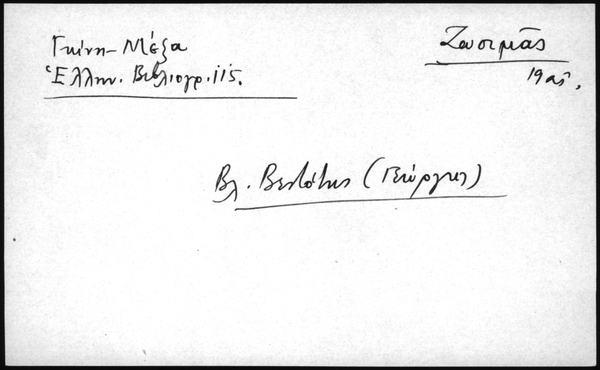 Γκίνη-Μέξα
Ἑλλην. Βιβλιογρ. 115.
Ζωσιμᾶς
19 αἰ.
Βλ. Βενδότης (Γεώργιος)